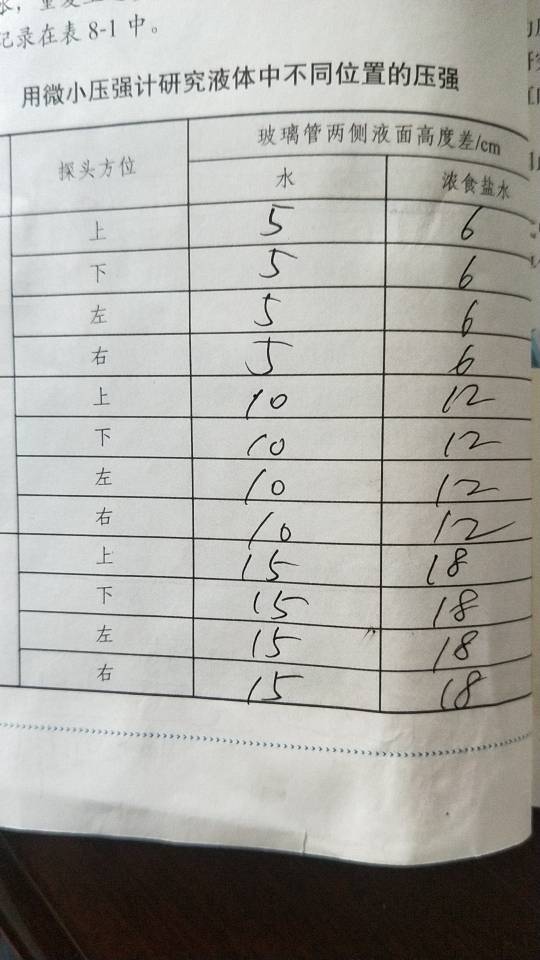 水，重复上
记录在表 8-1 中。
用微小压强计研究液体中不同位置的压强
探头方位 玻璃管两侧液面高度差/cm
水 浓食盐水
上 5 6
下 5 6
左 5 6
右 5 6
上 10 12
下 10 12
左 10 12
右 10 12
上 15 18
下 15 18
左 15 18
右 15 18